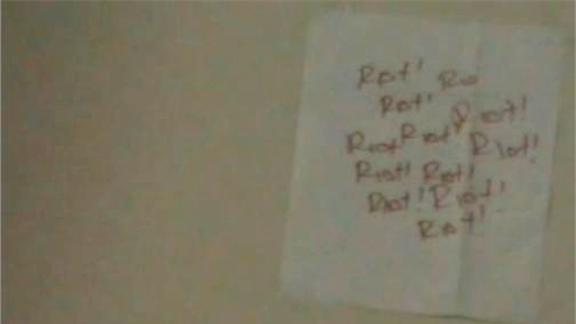 Riot! Rio
Riot! Riot!
Riot Riot! Riot!
Riot! Riot!
Riot! Riot!
Riot!